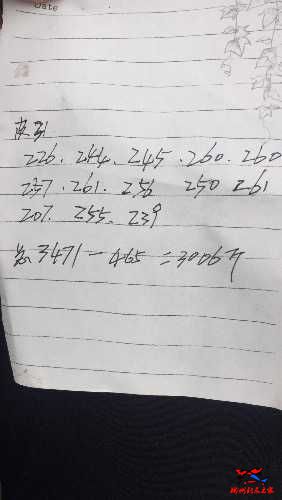 Date
226. 244. 245. 260. 260
237. 261. 256 250 261
207. 255. 239
总3471-465=3006斤